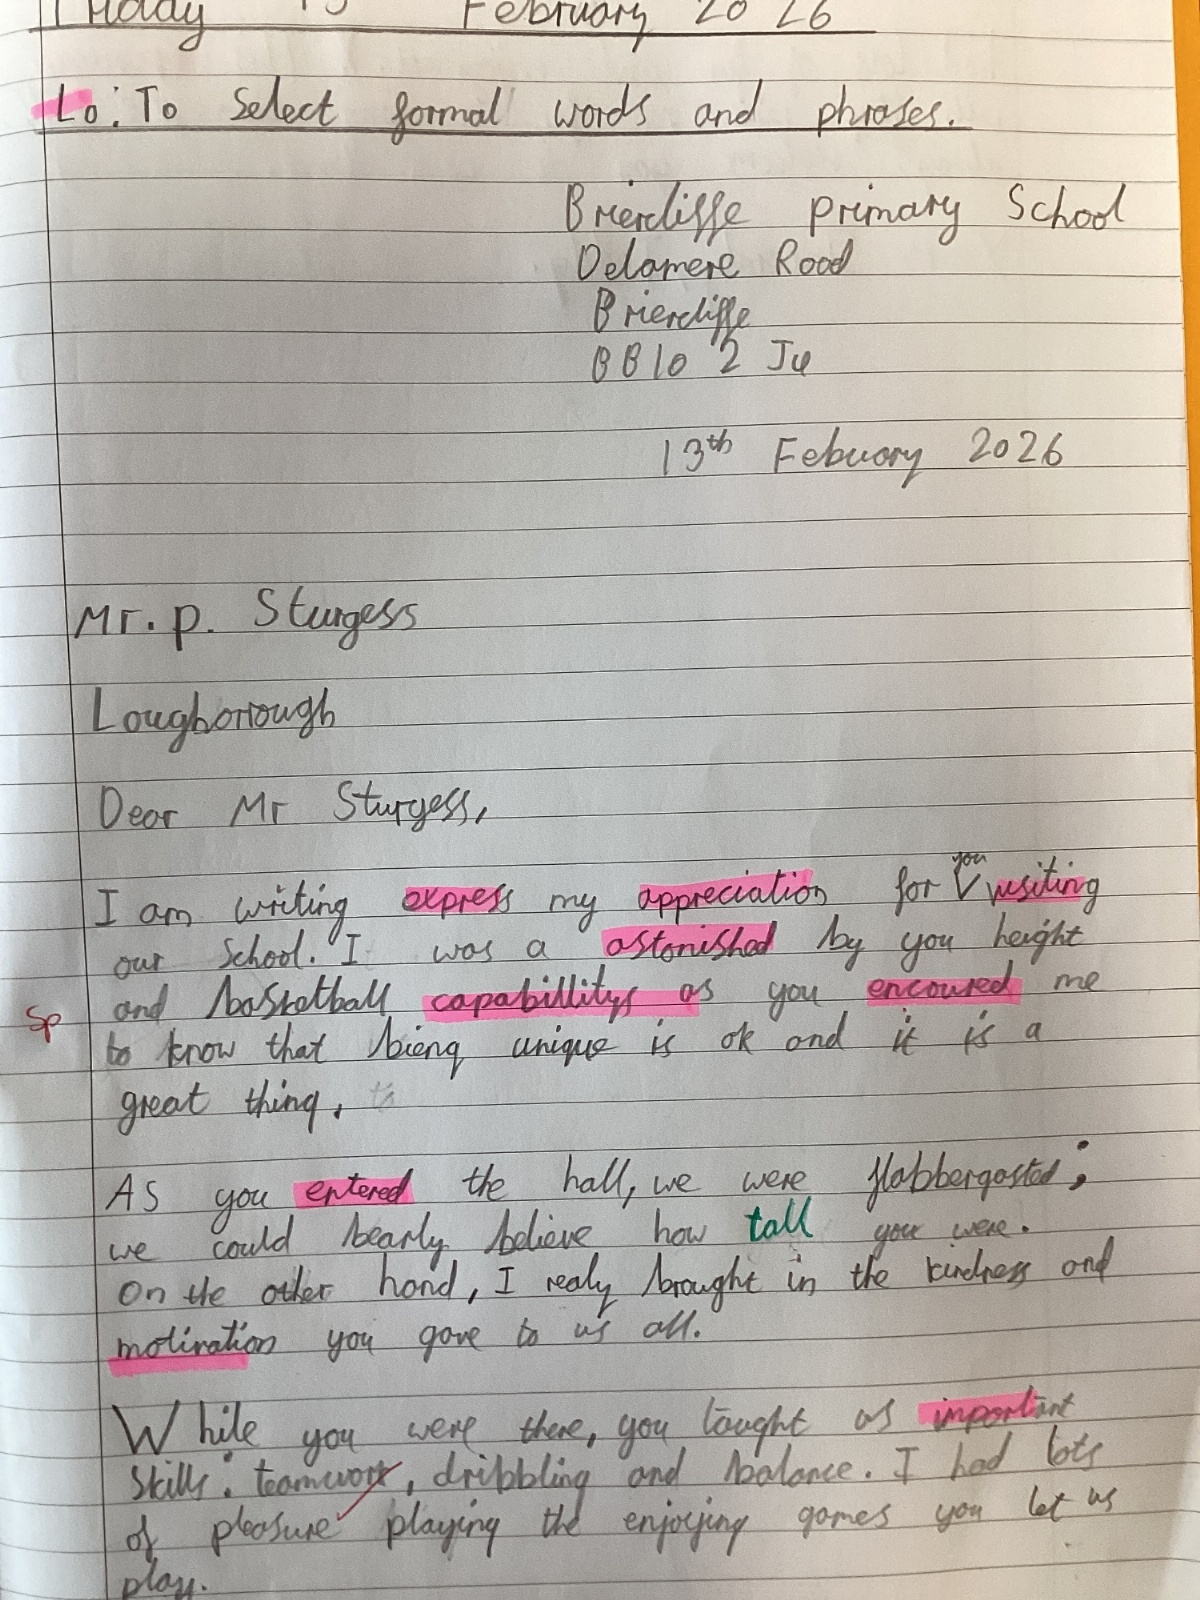 Friday 13 February 2026
Lo: To select formal words and phrases.
Briercliffe primary School
Delamere Road
Briercliffe
BB10 2 Ju
13th Febuary 2026
Mr. p. Sturgess
Loughborough
Dear Mr Sturgess,
I am writing express my appreciation for you visiting
our school. I was a astonished by you height
and basketball capabillitys as you encoured me
Sp
to know that bieng unique is ok and it is a
great thing.
As you entered the hall, we were flabbergasted;
we could bearly believe how tall you were.
On the other hand, I realy brought in the kindness and
motivation you gave to us all.
While you were there, you taught us important
skills: teamwork, dribbling and balance. I had lots
of pleasure playing the enjoying games you let us
play.